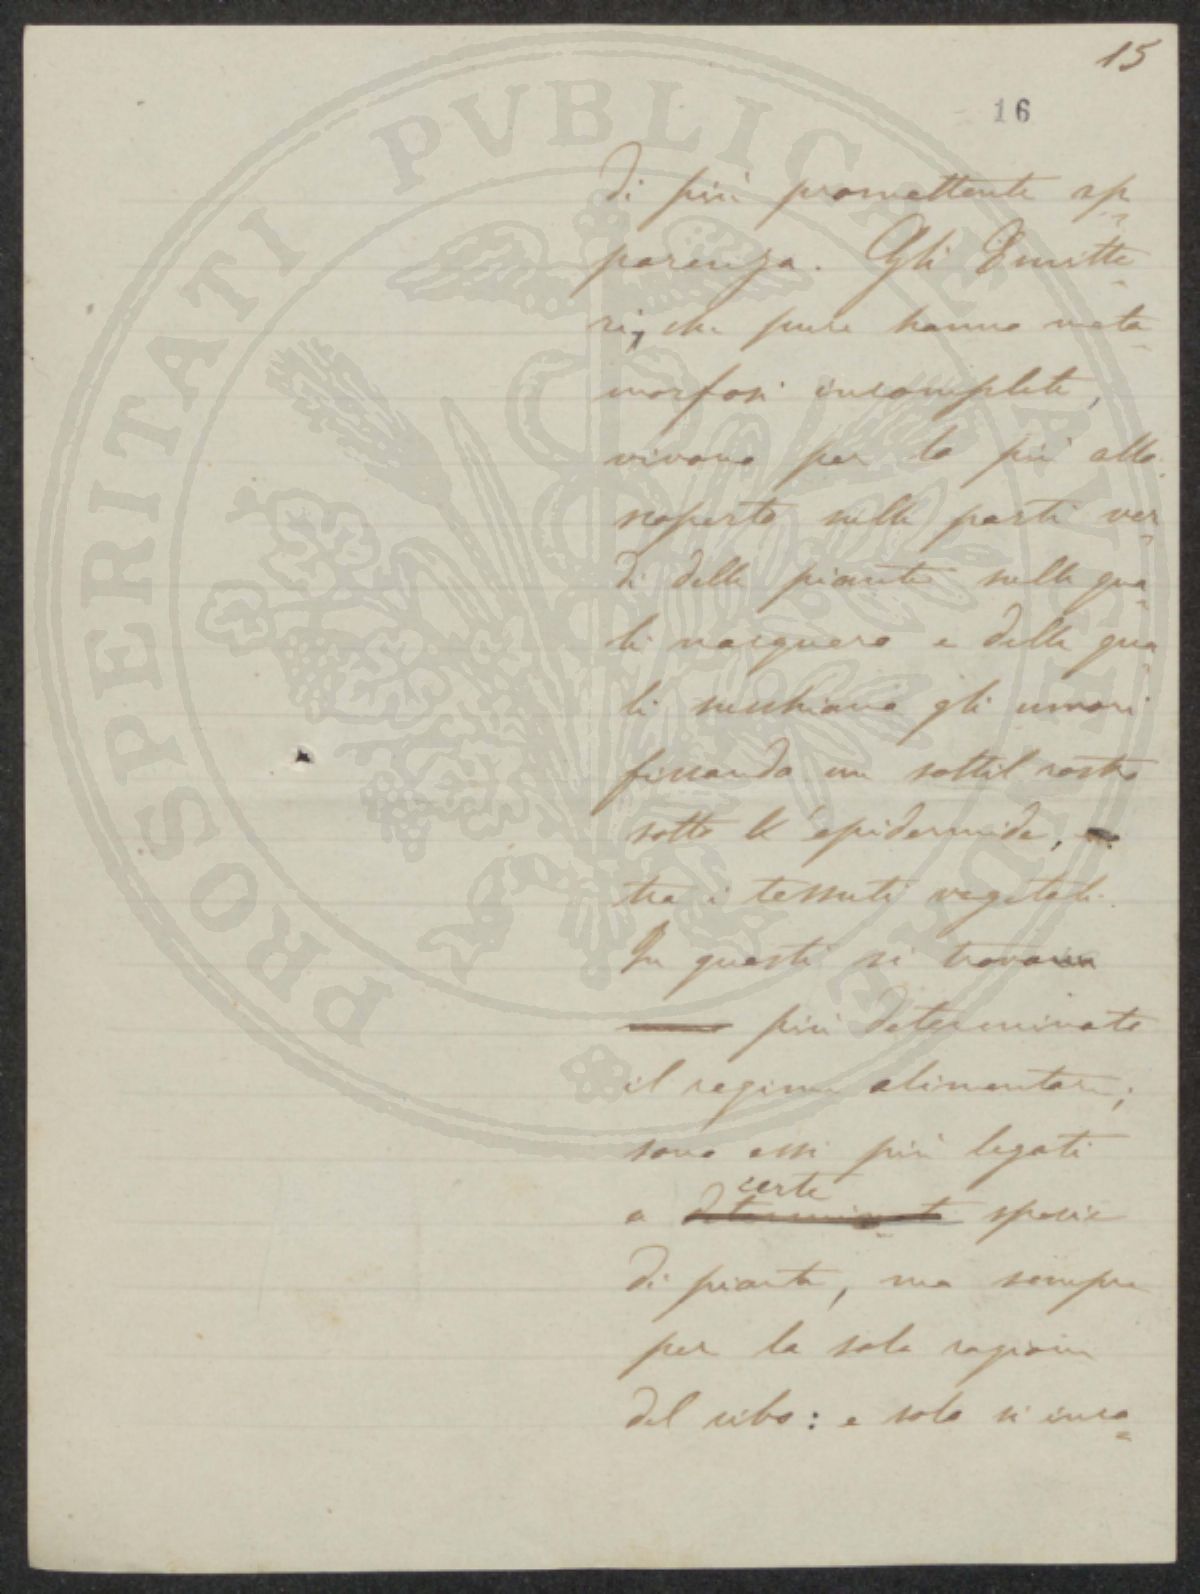 15
16
di più promettente ap=
parenza. Gli Emitte=
ri, che pure hanno meta=
morfosi incomplete,
vivono per lo più allo
scoperto sulle parti ver=
di delle piante sulle qua=
li nacquero e delle qua=
li succhiano gli umori
fissando un sottil rostro
sotto l'epidermide,
tra i tessuti vegetali.
In questi si trova
più determinato
il regime alimentare;
sono essi più legati
certe
a determinate specie
di piante, ma sempre
per la sola ragione
del cibo: e solo si inco=
PROSPERITATI PVBLICAE AVGENDAE